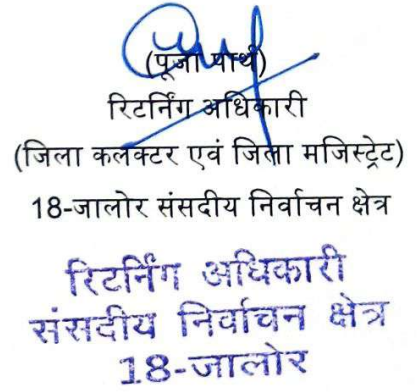 (पूजा पार्थ)
रिटर्निंग अधिकारी
(जिला कलक्टर एवं जिला मजिस्ट्रेट)
18-जालोर संसदीय निर्वाचन क्षेत्र
रिटर्निंग अधिकारी
संसदीय निर्वाचन क्षेत्र
18-जालोर